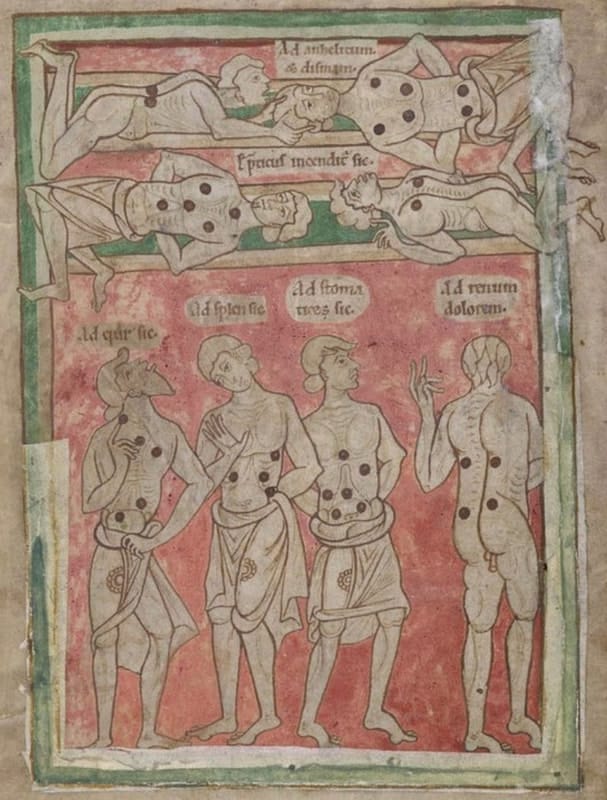 Ad anhelitum
& disinam.
Ep̄ticus incendit̄ sic.
Ad epar sic.
Ad splen sic
Ad stoma
ticos sic.
Ad renum
dolorem.